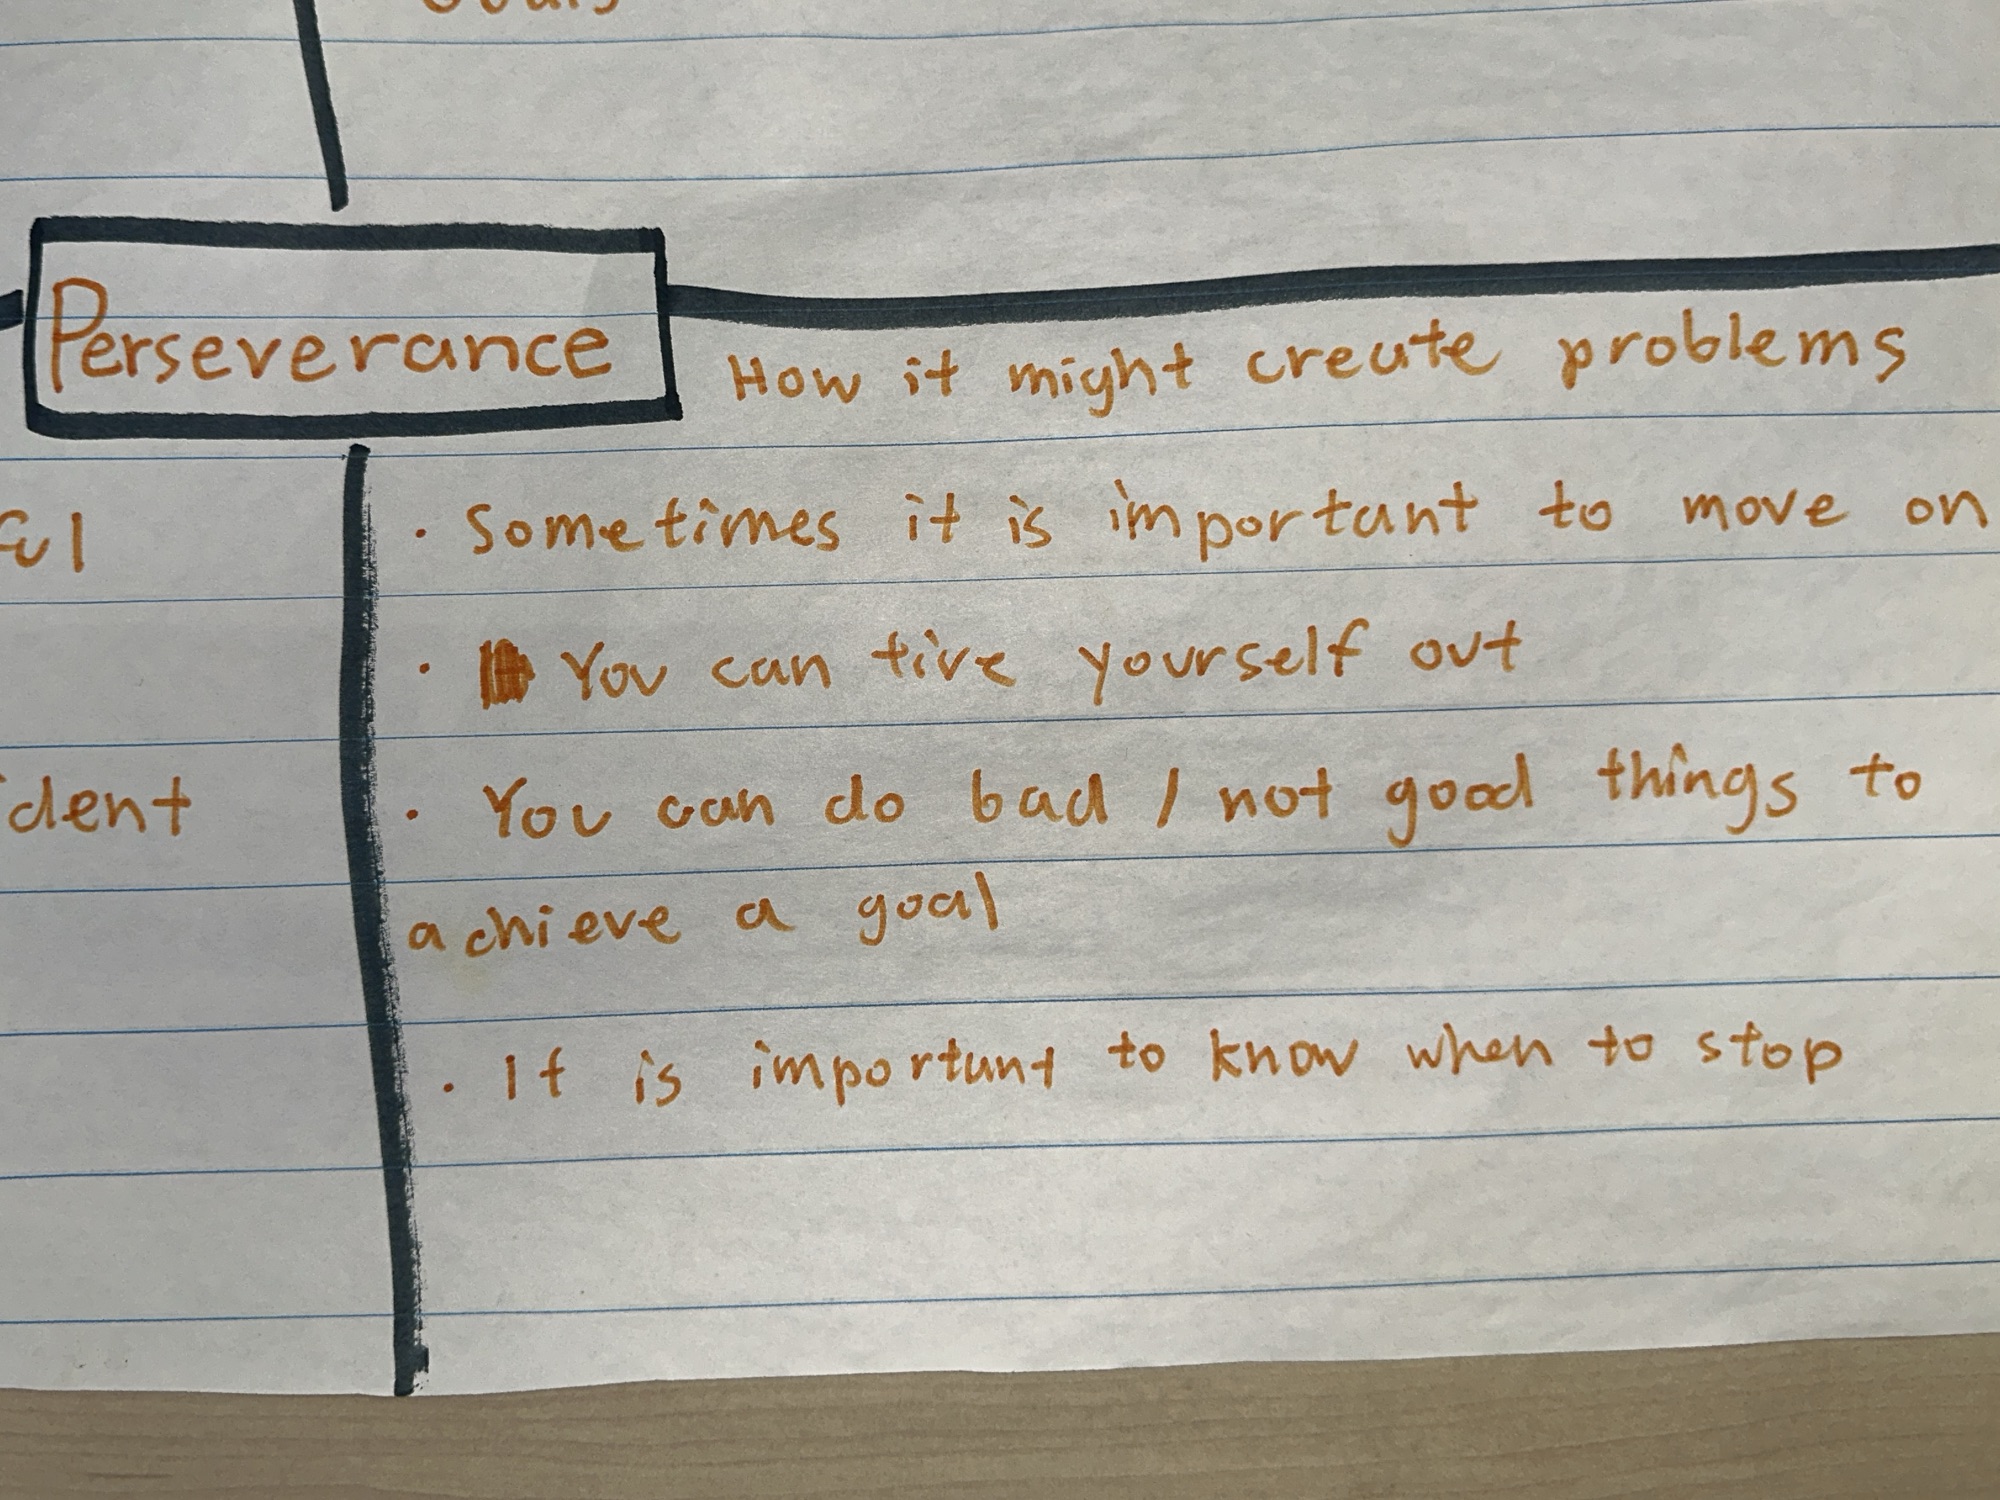 Perseverance
How it might create problems
· Sometimes it is important to move on
· You can tire yourself out
dent
· You can do bad / not good things to
achieve a goal
· It is important to know when to stop